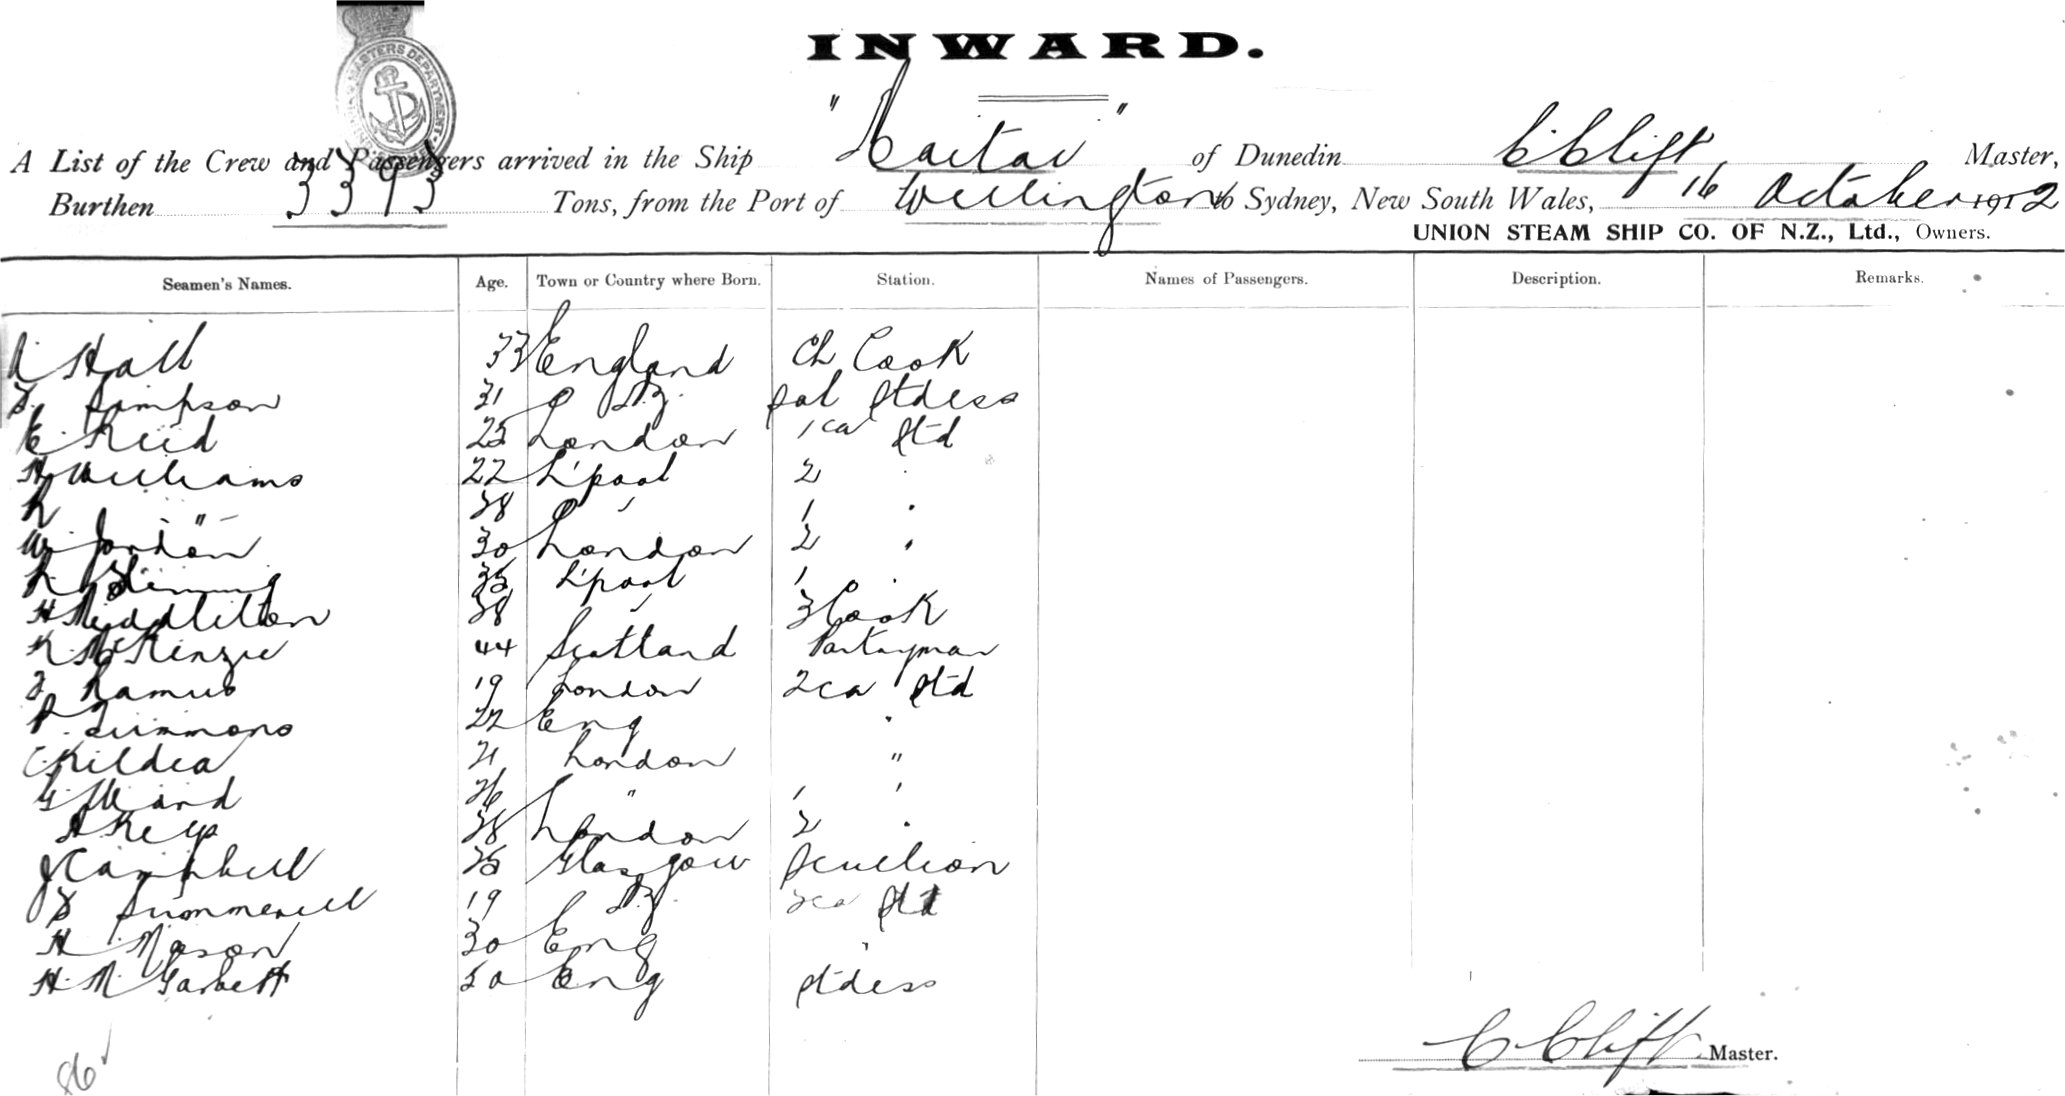 INWARD.
MASTERS DEPARTMENT
A List of the Crew and Passengers arrived in the Ship "Maitai" of Dunedin C Clift, Master,
Burthen 3393 Tons, from the Port of Wellington to Sydney, New South Wales, 16 October 1912
UNION STEAM SHIP CO. OF N.Z., Ltd., Owners.
Seamen's Names. Age. Town or Country where Born. Station. Names of Passengers. Description. Remarks.
Hall 33 England Ch Cook
Simpson 31 N.Z. Sal Stdess
E. Reid 25 London 1 ca Std
H Williams 22 L'pool 2 "
L " 38 " 1 "
W. Jordan 30 London 2 "
L. 35 L'pool 1 "
H Middleton 38 " 3 Cook
K. McKenzie 44 Scotland Pantryman
19 London 2 ca Std
P. Simmons 22 Eng "
C Kildea 21 London "
G. Ward 26 " 1 "
A Keys 38 London 2 "
J Campbell 25 Glasgow Scullion
S Summerell 19 N.Z. 2 ca Std
H Mason 30 Eng "
H. M. Garbett 50 Eng Stdess
86
C Clift Master.